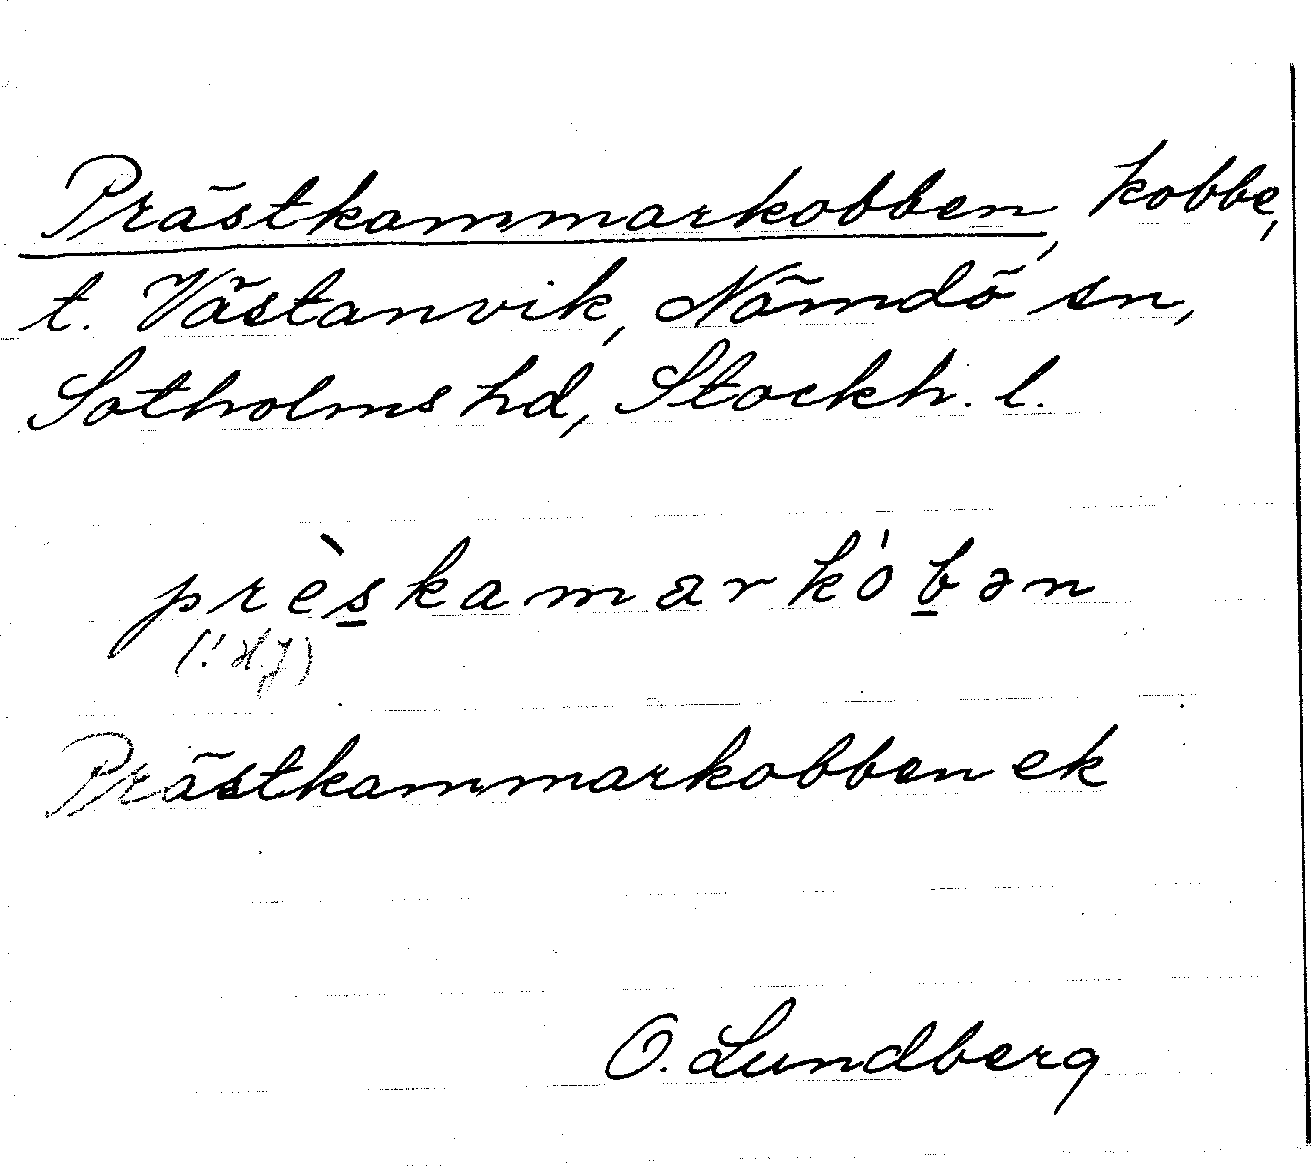 Prästkammarkobben, kobbe,
t. Västanvik, Nämdö sn,
Sotholms hd, Stockh. l.
près̲kamarkób̲ən
Prästkammarkobben ek
O. Lundberg